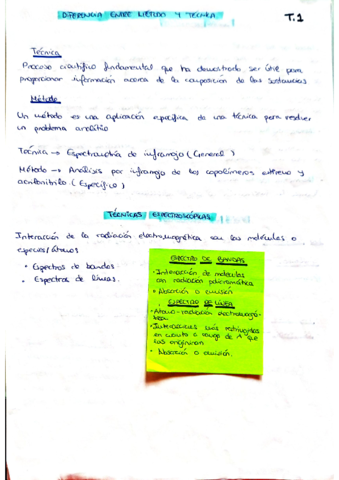 DIFERENCIA ENTRE MÉTODO Y TÉCNICA
T.1
Técnica
Proceso científico fundamental que ha demostrado ser útil para
proporcionar información acerca de la composición de las sustancias
Método
Un método es una aplicación específica de una técnica para resolver
un problema analítico
Técnica → Espectroscopía de infrarrojo (General)
Método → Análisis por infrarrojo de los copolímeros estireno y
acrilonitrilo (Específico)
TÉCNICAS ESPECTROSCÓPICAS
Interacción de la radiación electromagnética con las moléculas o
especies/átomos
• Espectros de bandas.
• Espectros de líneas.
ESPECTRO DE BANDAS
• Interacción de moléculas
con radiación policromática
• Absorción o emisión
ESPECTRO DE LÍNEA
• Átomo-radiación electromagné-
tica.
• Interacciones más restringidas
en cuanto a rango de λ que
las originan
• Absorción o emisión.